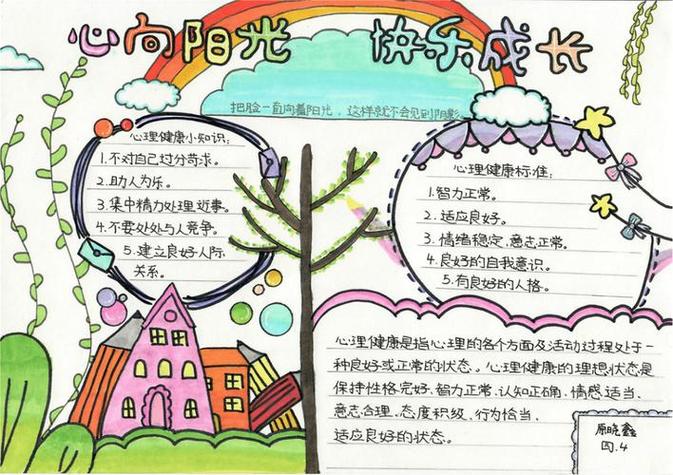 心向阳光 快乐成长
把脸一直向着阳光，这样就不会见到阴影。
心理健康小知识：
1.不对自己过分苛求。
2.助人为乐。
3.集中精力处理近事。
4.不要处处与人竞争。
5.建立良好人际
关系。
心理健康标准：
1.智力正常。
2.适应良好。
3.情绪稳定、意志正常。
4.良好的自我意识。
5.有良好的人格。
心理健康是指心理的各个方面及活动过程处于一
种良好或正常的状态。心理健康的理想状态是
保持性格完好、智力正常、认知正确、情感适当、
意志合理、态度积级、行为恰当、
适应良好的状态。
原晓鑫
四.4